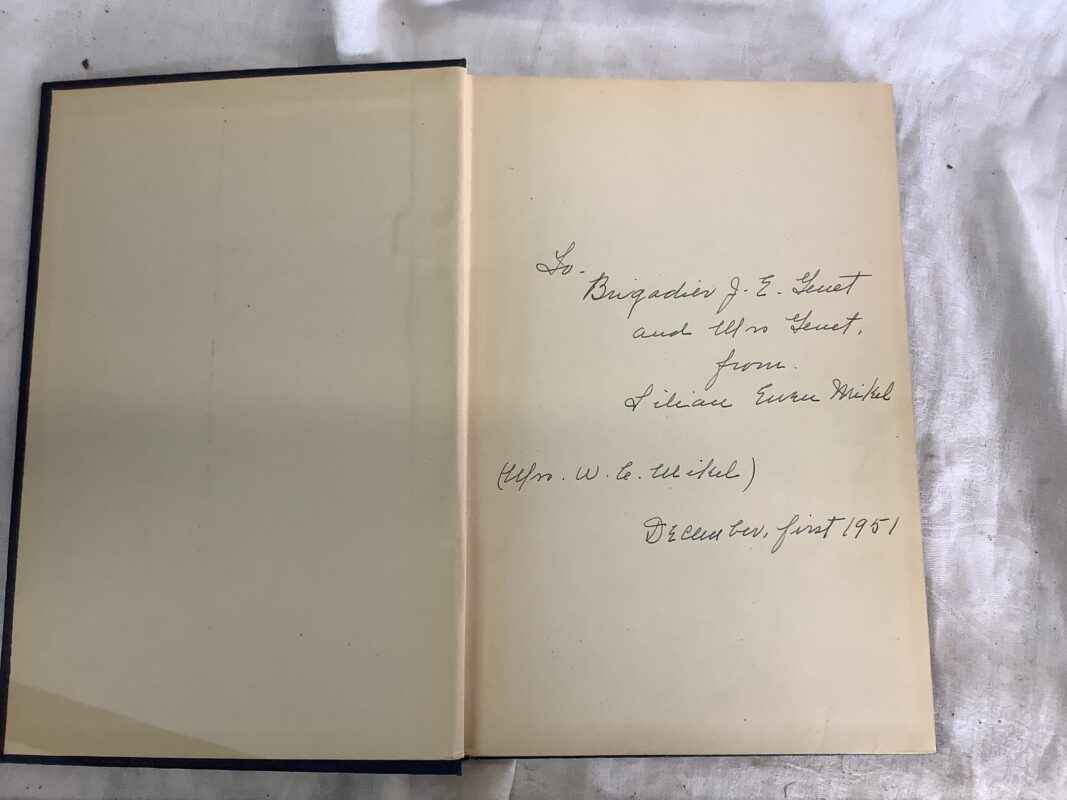 To.
Brigadier J. E. Genet
and Mrs Genet,
from.
Lilian Ewen Mikel
(Mrs. W. C. Mikel)
December, first 1951